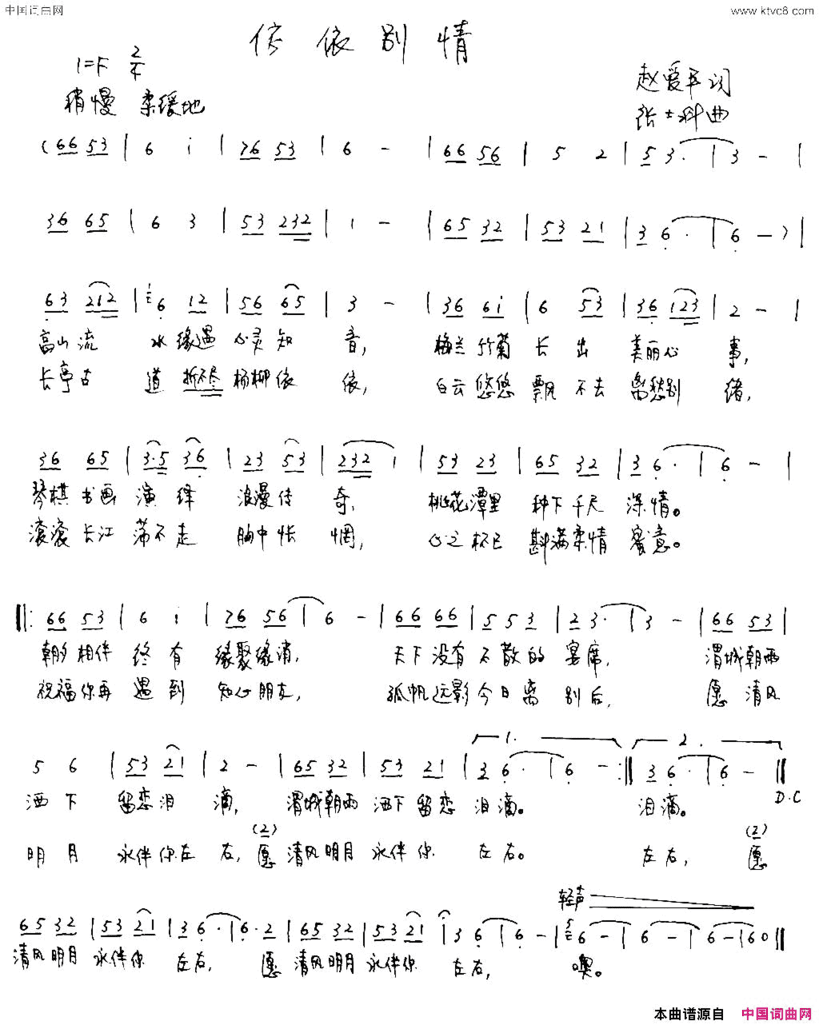 中国词曲网
www.ktvc8.com
依依别情
1=F 2/4
赵爱平词
稍慢 柔缓地
张士科曲
(66 53 | 6 i | 76 53 | 6 - | 66 56 | 5 2 | 53· | 3 - |
36 65 | 6 3 | 53 232 | 1 - | 65 32 | 53 21 | 36· | 6 -) |
63 212 | 6 12 | 56 65 | 3 - | 36 6i | 6 53 | 36 123 | 2 - |
高山流 水缘遇 心灵知 音, 梅兰竹菊 长出 美丽心 事,
长亭古 道折不尽 杨柳依 依, 白云悠悠 飘不去 离愁别 绪,
36 65 | 3·5 36 | 23 53 | 232 1 | 53 23 | 65 32 | 36· | 6 - |
琴棋书画 演绎 浪漫传 奇, 桃花潭里 种下千尺 深情。
滚滚长江 荡不走 胸中怅 惘, 心之杯已 斟满柔情 蜜意。
||: 66 53 | 6 i | 76 56 | 6 - | 66 66 | 55 3 | 23· | 3 - | 66 53 |
朝夕相伴 终有 缘聚缘消, 天下没有 不散的 宴席, 渭城朝雨
祝福你再 遇到 知心朋友, 孤帆远影今日离 别后, 愿 清风
1. 2.
5 6 | 53 21 | 2 - | 65 32 | 53 21 | 36· | 6 - :|| 36· | 6 - ||
D.C
洒下 留恋泪 滴, 渭城朝雨 洒下留恋 泪滴。 泪滴。
(2) (2)
明月 永伴你左 右, 愿 清风明月 永伴你 左右。 左右, 愿
轻声
65 32 | 53 21 | 36· | 6·2 | 65 32 | 53 21 | 36 | 6 - | 6 - | 6 - | 6 - | 60 ||
清风明月 永伴你 左右, 愿 清风明月 永伴你 左右, 噢。
本曲谱源自 中国词曲网